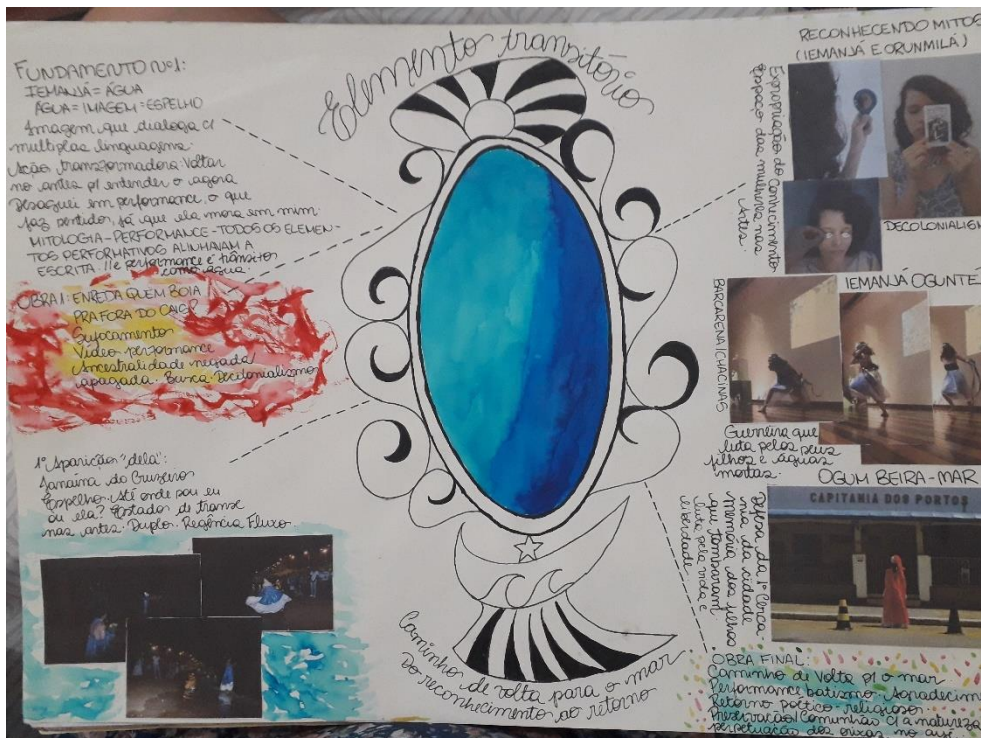 Elemento transitório
FUNDAMENTO Nº1:
IEMANJÁ = ÁGUA
ÁGUA = IMAGEM = ESPELHO
Imagem que dialoga c/
multiplas linguagens.
Ação transformadora. Voltar
no antes p/ entender o agora
Desaguei em performance, o que
faz sentido, já que ela mora em mim.
MITOLOGIA - PERFORMANCE - TODOS OS ELEMEN-
TOS PERFORMATIVOS ALINHAVAM A
ESCRITA. // e performance é trânsitos
como água.
OBRA 1: ENREDA QUEM BOIA
PRA FORA DO CAOS
Sufocamento
Vídeo performance
Ancestralidade negada/
apagada. Busca. Decolonialismo
1ª Aparição "dela":
Janaína do Cruzeiro
Espelho. Até onde sou eu
ou ela? Estados de transe
nas artes. Duplo. Regência Fluxo.
Caminho de volta para o mar
Do reconhecimento ao retorno
RECONHECENDO MITOS
(IEMANJÁ E ORUNMILÁ)
Expropriação do Conhecimento
Espaço das mulheres nas
Artes.
DECOLONIALISM
IEMANJÁ OGUNTÉ
BARCARENA/CHACINAS
Guerreira que
luta pelos seus
filhos e águas
mortas.
OGUM BEIRA-MAR
CAPITANIA DOS PORTOS
Defesa da 1ª Cerca-
nia da cidade
memória dos filhos
que tombaram
luta pela vida e
liberdade
OBRA FINAL:
Caminho de Volta p/ o mar
Performance batismo. Agradecim
Retorno poético-religioso.
Preservação/Comunhão c/ a natureza
perpetuação dos orixás no